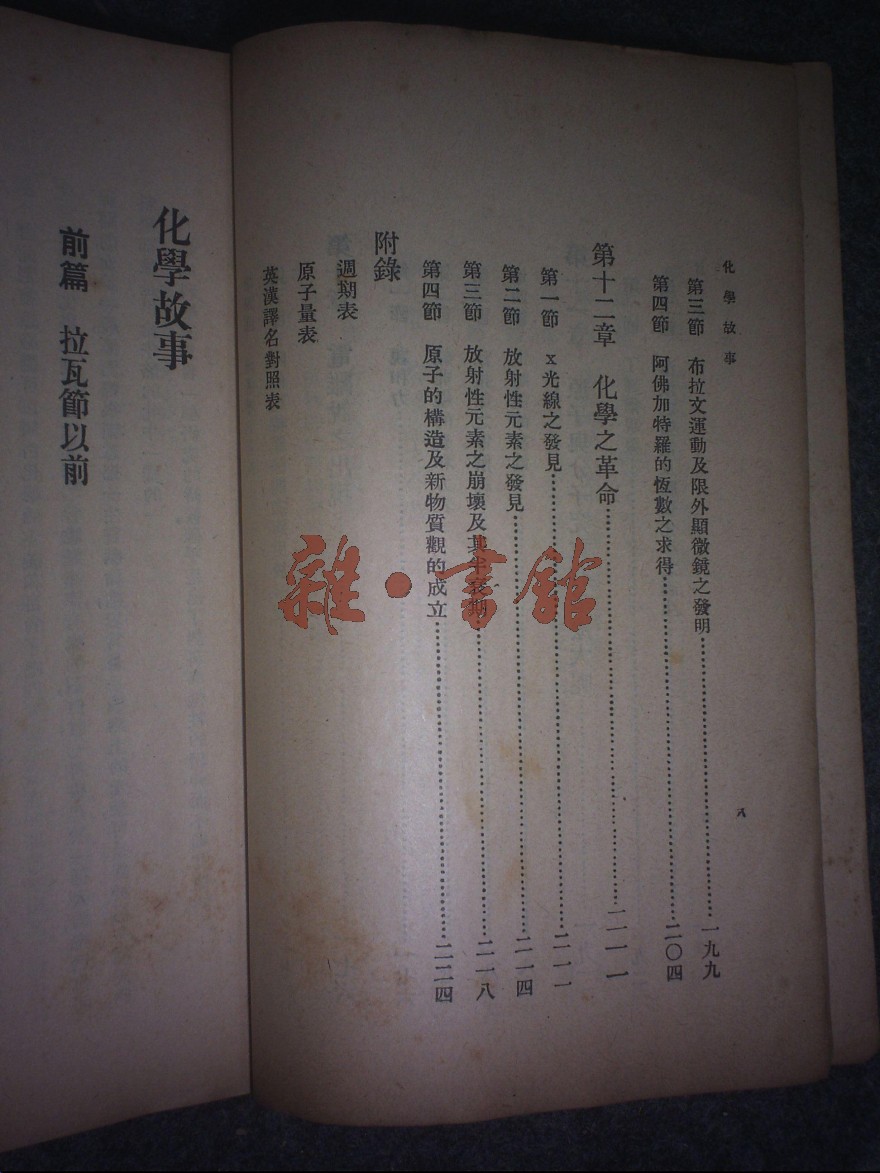 化學故事
第三節　布拉文運動及限外顯微鏡之發明……一九九
第四節　阿佛加特羅的恆數之求得……二〇四
第十二章　化學之革命……二一一
第一節　x光線之發見……二一一
第二節　放射性元素之發見……二一四
第三節　放射性元素之崩壞及其半衰期……二一八
第四節　原子的構造及新物質觀的成立……二二四
附錄
週期表
原子量表
英漢譯名對照表
八
化學故事
前篇　拉瓦節以前
雜·書館